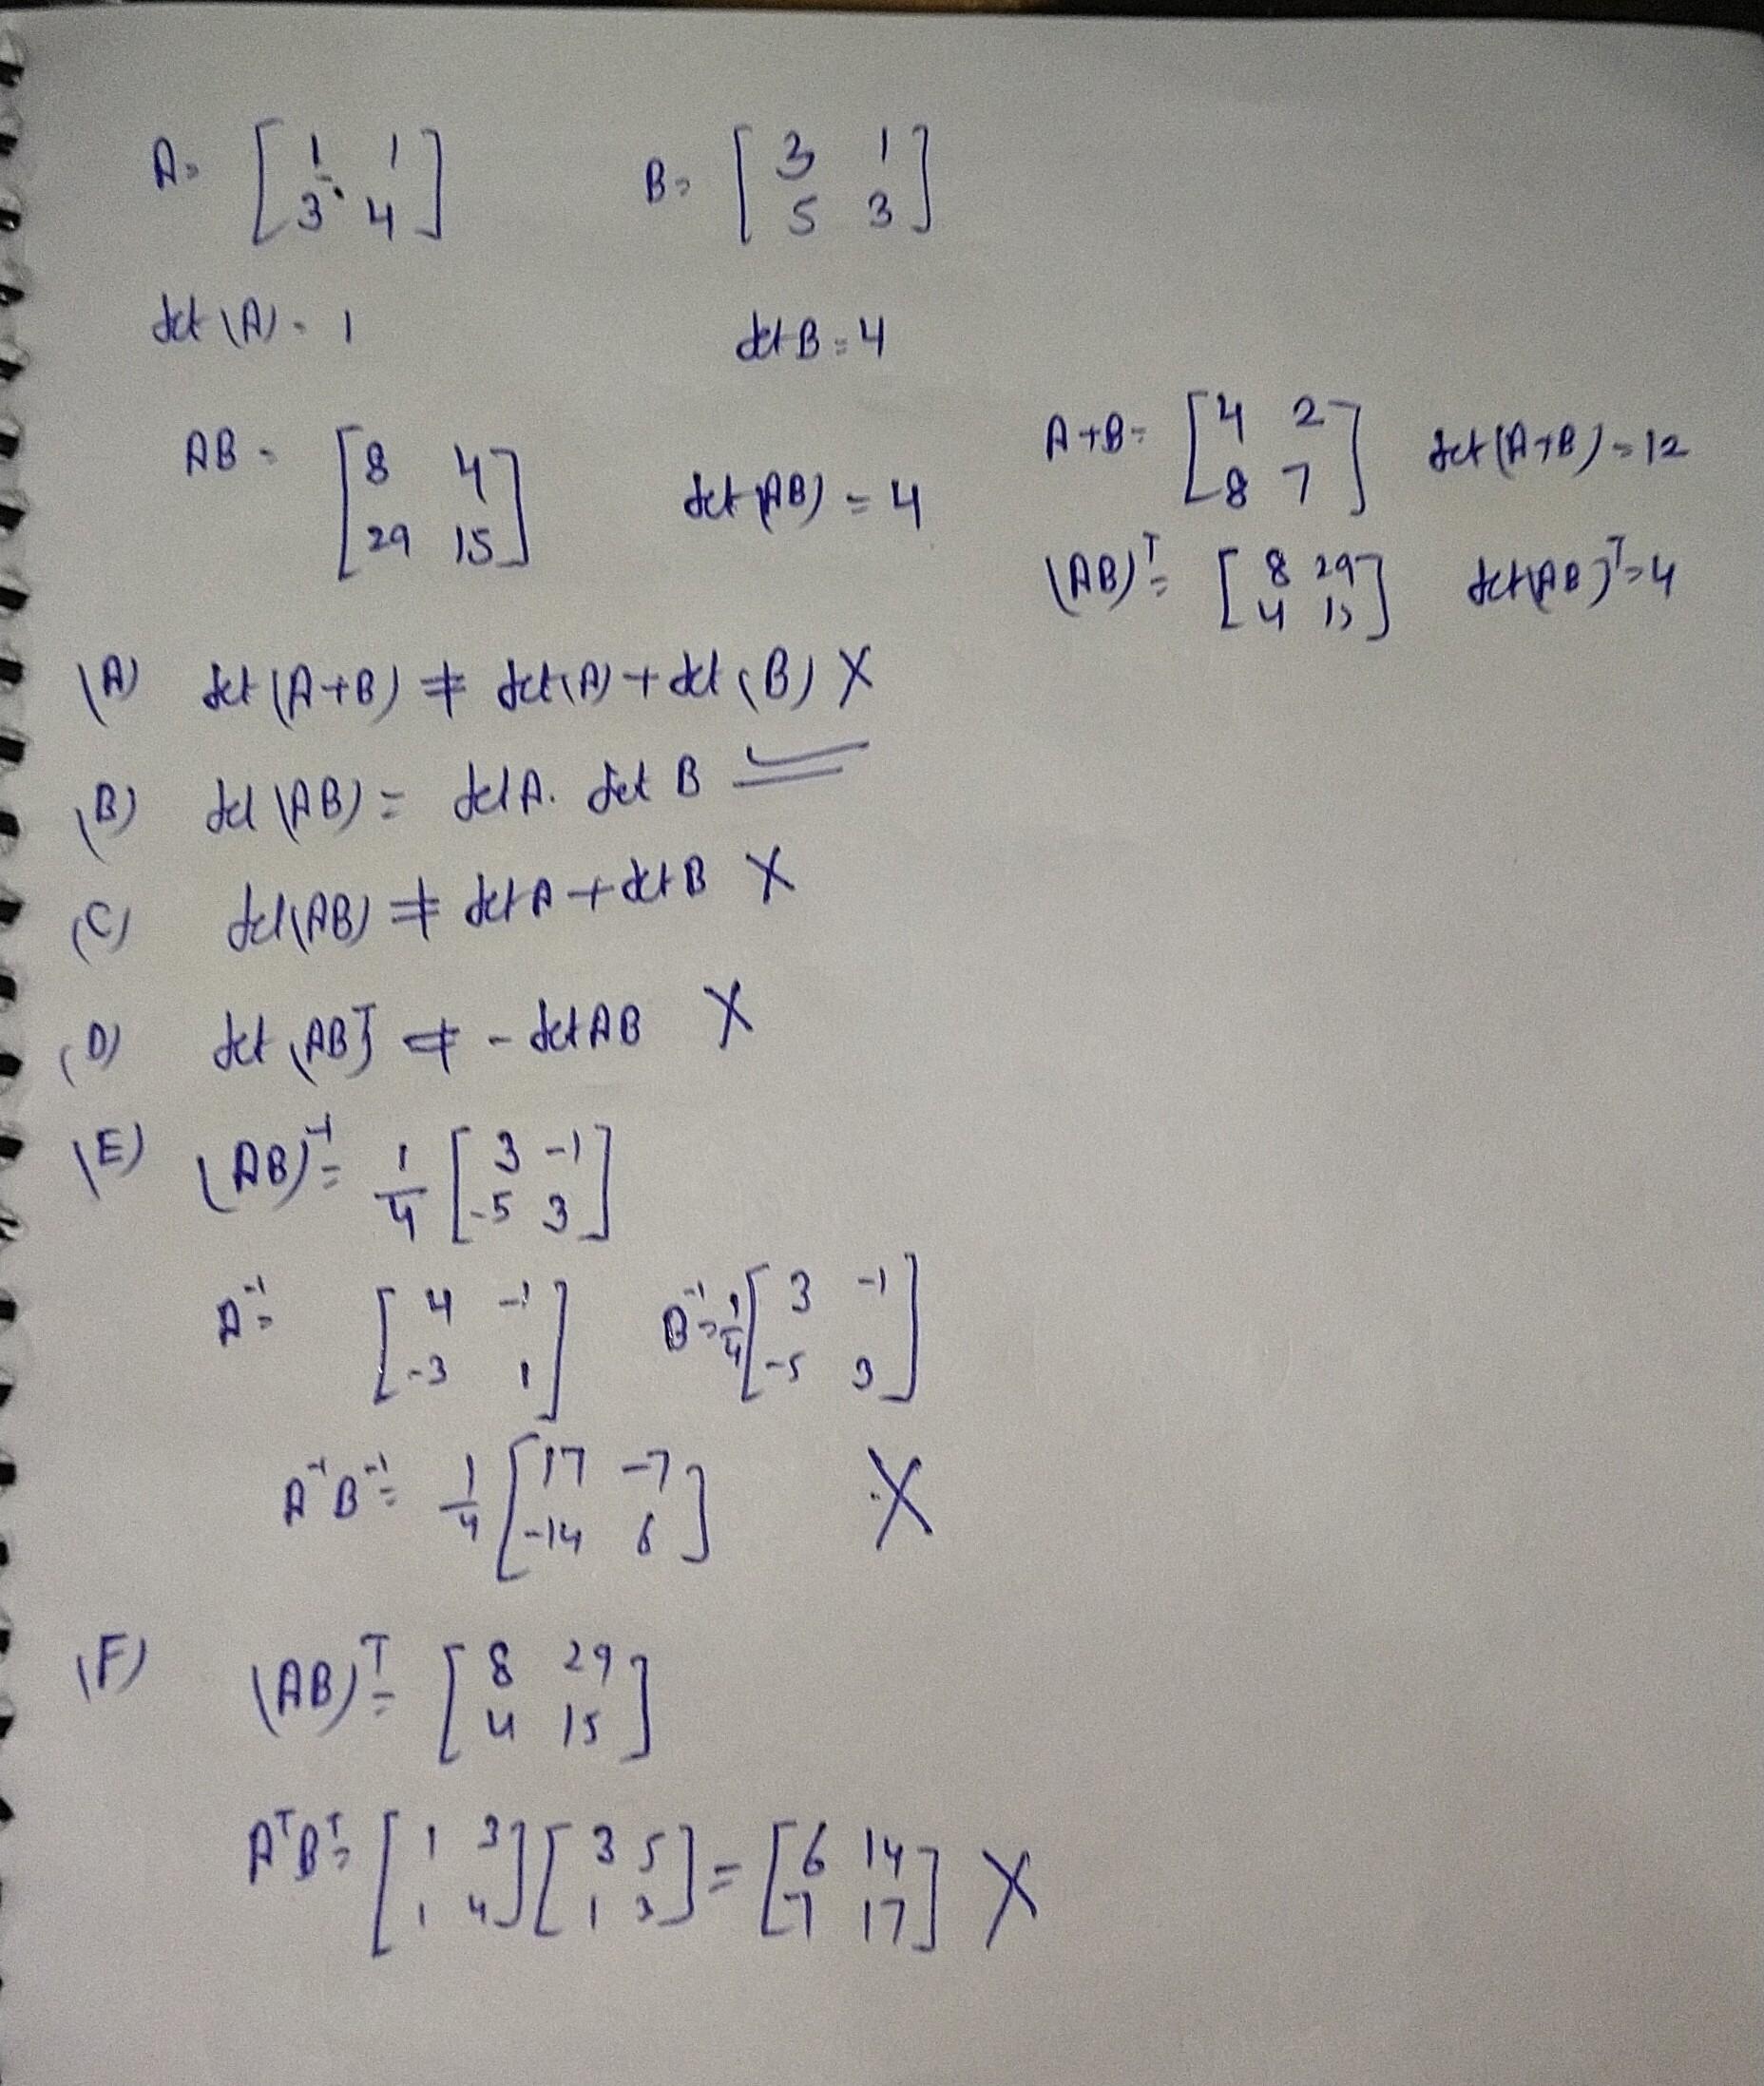 A = [1 1; 3 4] B = [3 1; 5 3]
det (A) = 1 det B = 4
AB = [8 4; 29 15] det (AB) = 4
A+B = [4 2; 8 7] det (A+B) = 12
(AB)ᵀ = [8 29; 4 15] det(AB)ᵀ = 4
(A) det (A+B) ≠ det(A) + det (B) X
(B) det (AB) = det A. det B ✓
(C) det(AB) ≠ det A + det B X
(D) det (AB)ᵀ ≠ - det AB X
(E) (AB)⁻¹ = 1/4 [3 -1; -5 3]
A⁻¹ = [4 -1; -3 1] B⁻¹ = 1/4 [3 -1; -5 3]
A⁻¹B⁻¹ = 1/4 [17 -7; -14 6] X
(F) (AB)ᵀ = [8 29; 4 15]
AᵀBᵀ = [1 3; 1 4] [3 5; 1 3] = [6 14; 7 17] X